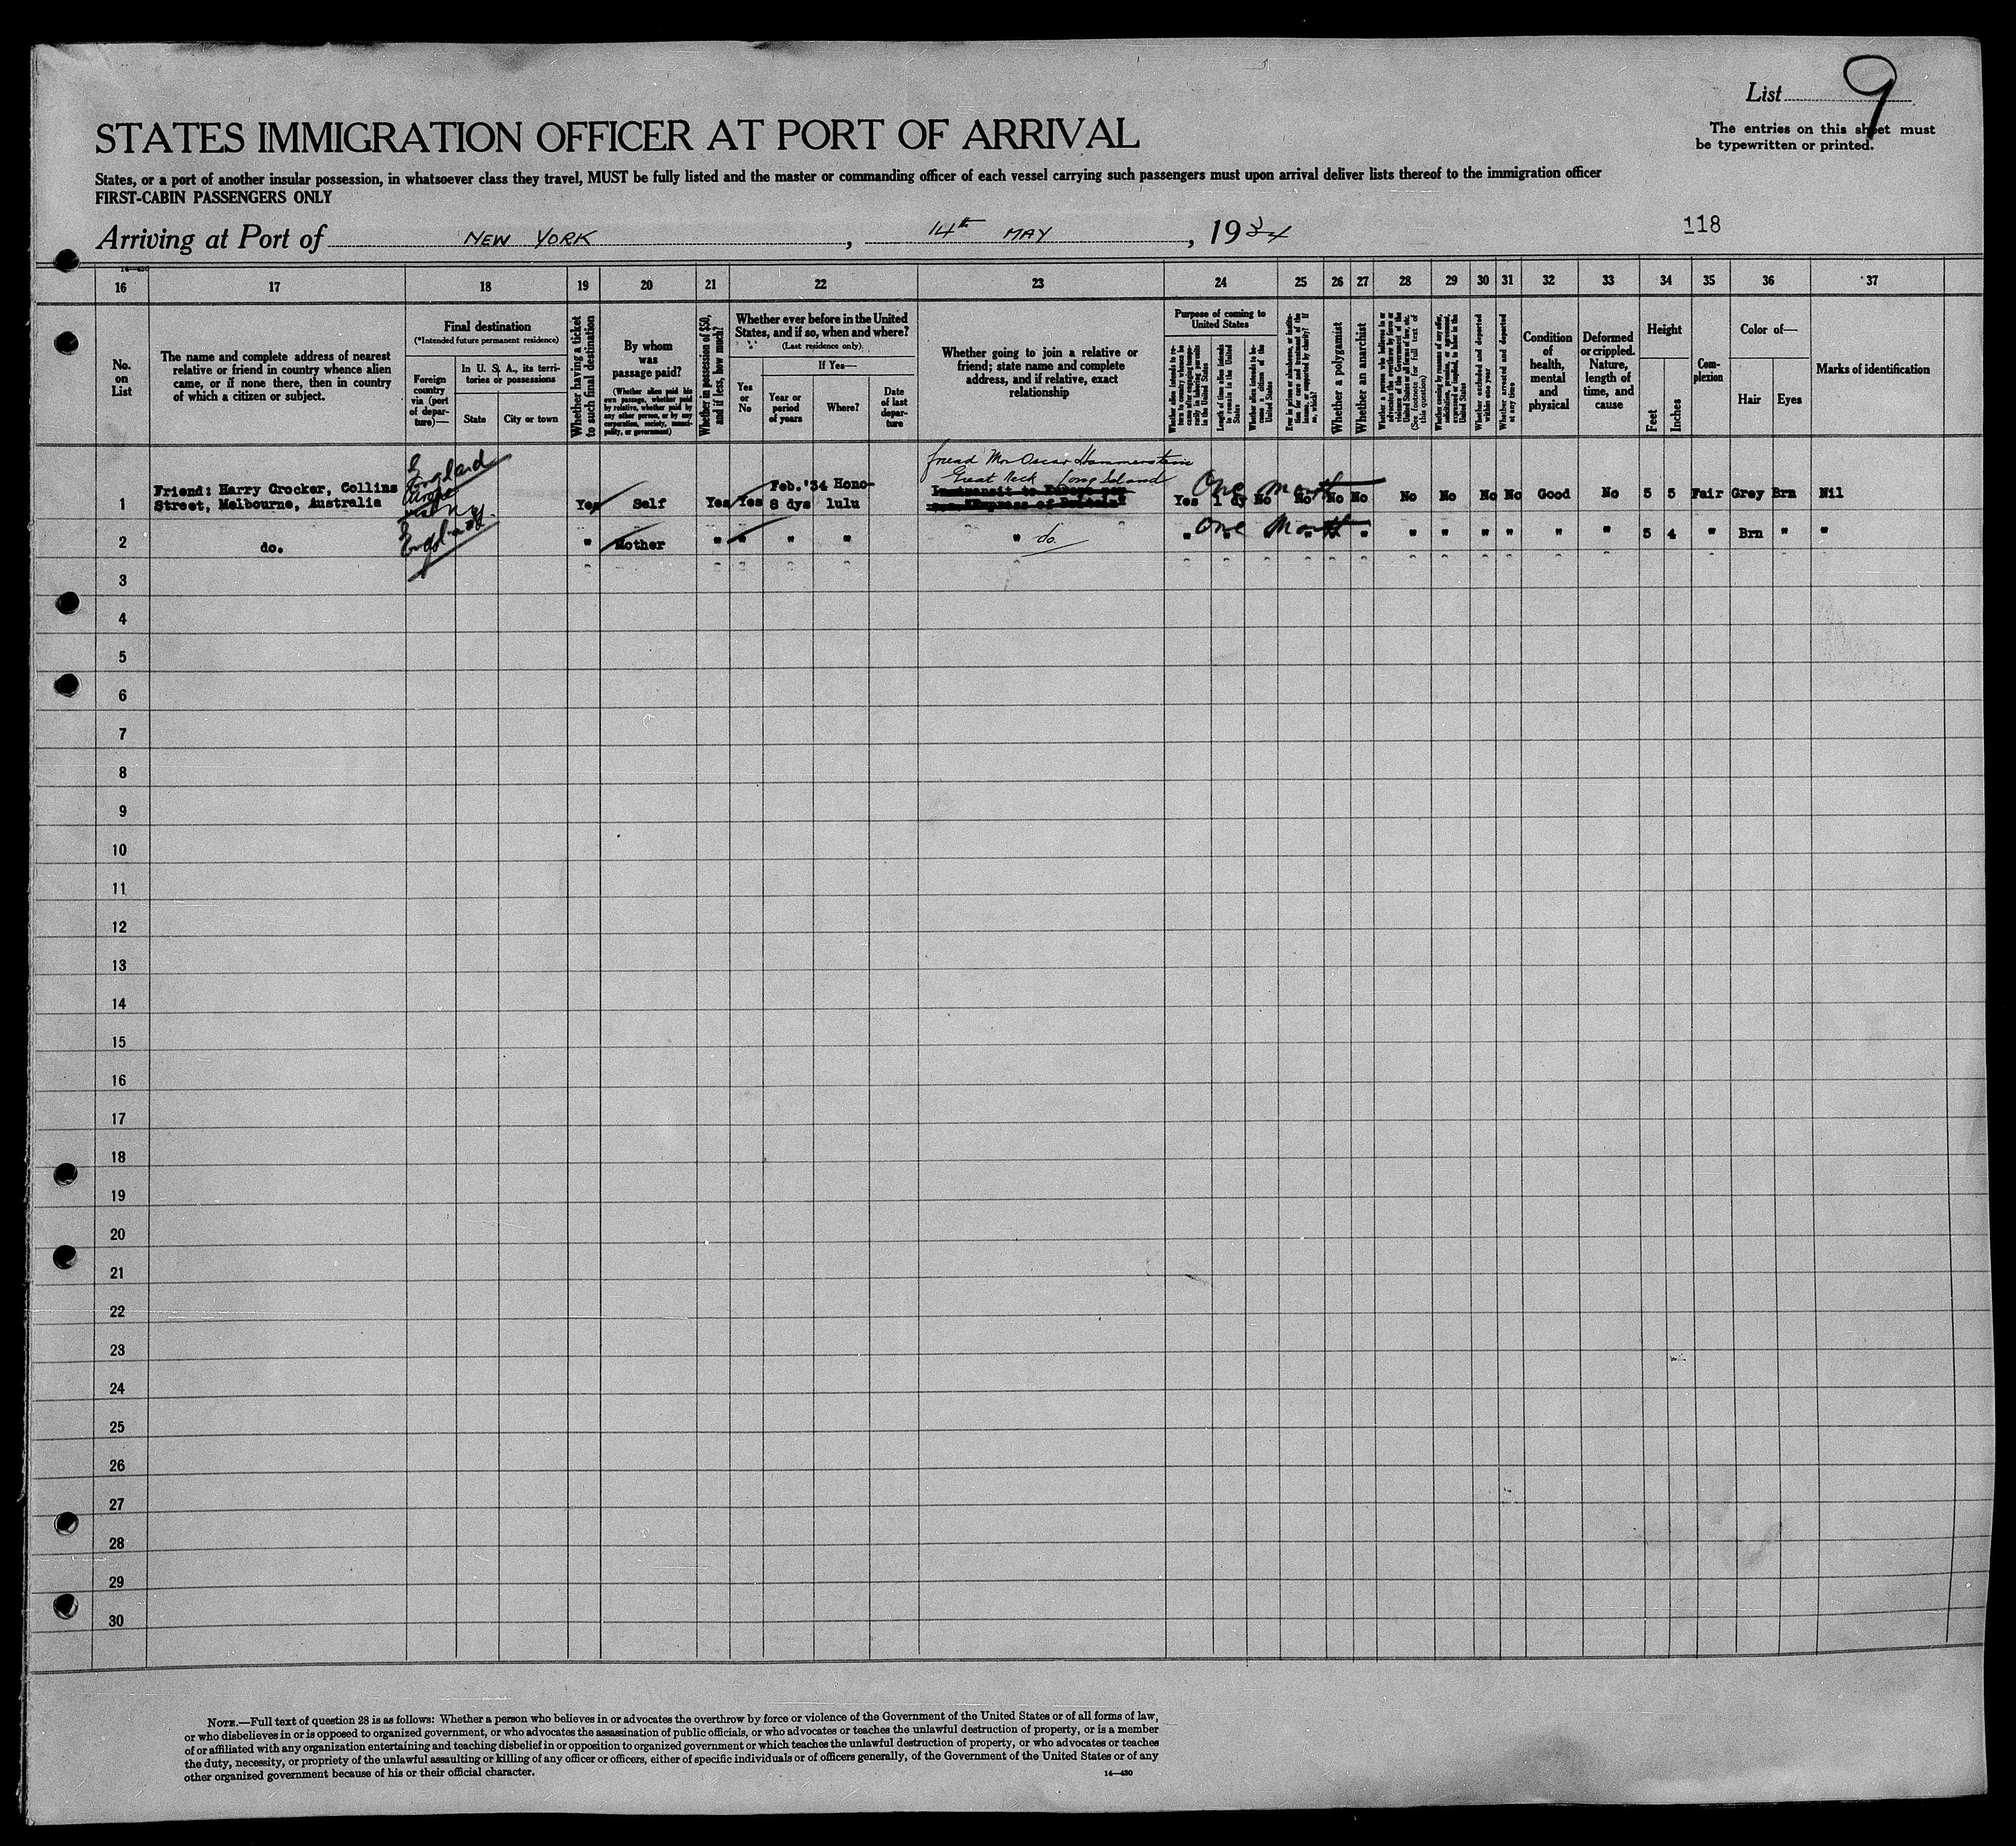 List 9
The entries on this sheet must
be typewritten or printed.
STATES IMMIGRATION OFFICER AT PORT OF ARRIVAL
States, or a port of another insular possession, in whatsoever class they travel, MUST be fully listed and the master or commanding officer of each vessel carrying such passengers must upon arrival deliver lists thereof to the immigration officer
FIRST-CABIN PASSENGERS ONLY
Arriving at Port of NEW YORK, 14th MAY, 1934
118
14—430
16 17 18 19 20 21 22 23 24 25 26 27 28 29 30 31 32 33 34 35 36 37
No.
on
List
The name and complete address of nearest
relative or friend in country whence alien
came, or if none there, then in country
of which a citizen or subject.
Final destination
(*Intended future permanent residence)
Foreign
country
via (port
of depar-
ture)—
In U. S. A., its terri-
tories or possessions
State
City or town
Whether having a ticket
to such final destination
By whom
was
passage paid?
(Whether alien paid his
own passage, whether paid
by relative, whether paid by
any other person, or by any
corporation, society, munici-
pality, or government)
Whether in possession of $50,
and if less, how much?
Whether ever before in the United
States, and if so, when and where?
(Last residence only)
If Yes—
Yes
or
No
Year or
period
of years
Where?
Date
of last
depar-
ture
Whether going to join a relative or
friend; state name and complete
address, and if relative, exact
relationship
Purpose of coming to
United States
Length of time alien intends
to remain in the United
States
Whether alien intends to be-
come a citizen of the
United States
Whether a polygamist
Whether an anarchist
Whether excluded and deported
within one year
Whether arrested and deported
at any time
Condition
of
health,
mental
and
physical
Deformed
or crippled.
Nature,
length of
time, and
cause
Height
Feet
Inches
Com-
plexion
Color of—
Hair
Eyes
Marks of identification
1 Friend: Harry Crocker, Collins
Street, Melbourne, Australia
England
Yes Self Yes Yes Feb.'34 Hono-
8 dys lulu
friend Mr Oscar Hammerstein
Great Neck Long Island
Yes 1 dy No No No No No No No No Good No 5 5 Fair Grey Brn Nil
One month
2 do. England " Mother " " " " " do. " One Month " " " " " " " 5 4 " Brn " "
3
4
5
6
7
8
9
10
11
12
13
14
15
16
17
18
19
20
21
22
23
24
25
26
27
28
29
30
NOTE.—Full text of question 28 is as follows: Whether a person who believes in or advocates the overthrow by force or violence of the Government of the United States or of all forms of law,
or who disbelieves in or is opposed to organized government, or who advocates the assassination of public officials, or who advocates or teaches the unlawful destruction of property, or is a member
of or affiliated with any organization entertaining and teaching disbelief in or opposition to organized government or which teaches the unlawful destruction of property, or who advocates or teaches
the duty, necessity, or propriety of the unlawful assaulting or killing of any officer or officers, either of specific individuals or of officers generally, of the Government of the United States or of any
other organized government because of his or their official character.
14—430